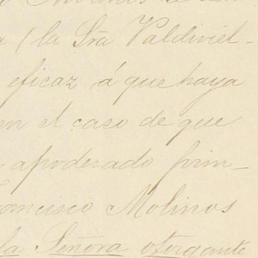 (la Sra Valdiviel-
eficaz á que haya
en el caso de que
apoderado prin-
Francisco Molinos
la Señora otorgante